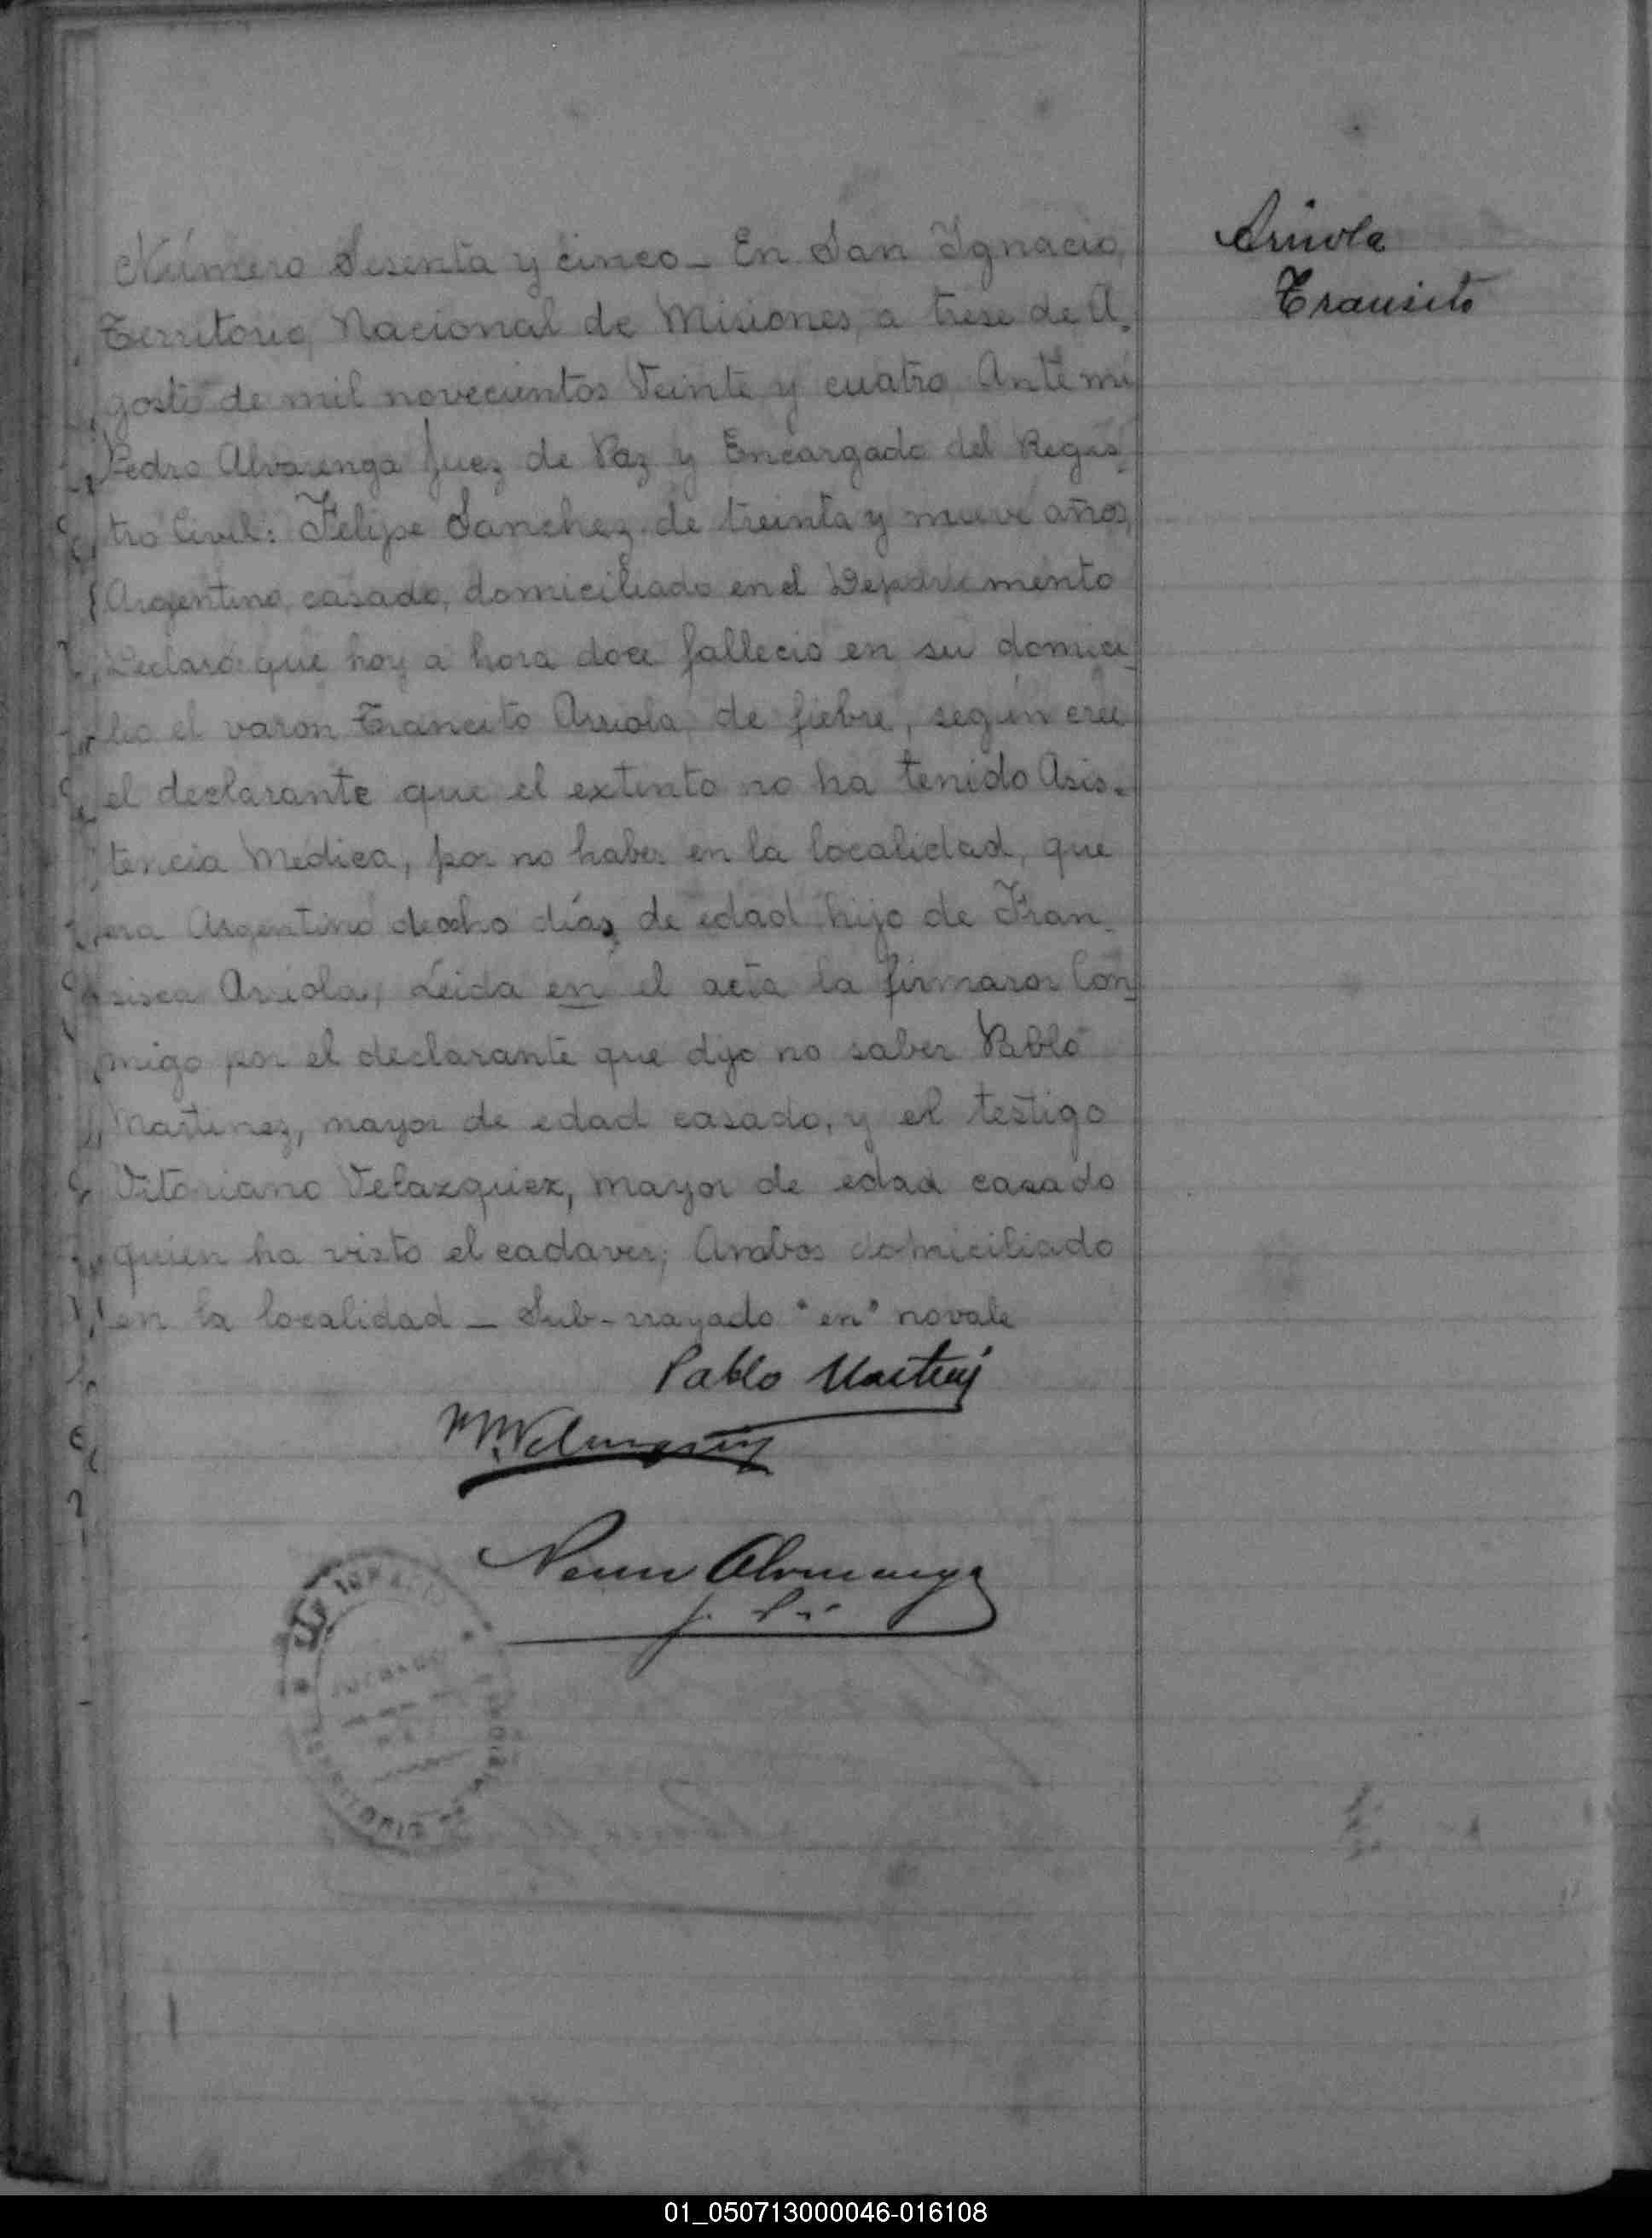 Arriola
Transito
Número Sesenta y cinco_ En San Ignacio,
Territorio Nacional de Misiones, a trese de A_
gosto de mil novecientos Veinte y cuatro Ante mi
Pedro Alvarenga Juez de Paz y Encargado del Regis_
tro Civil: Felipe Sanchez de treinta y nueve años,
Argentino, casado, domiciliado en el Departamento
Declaró: que hoy a hora doce fallecio en su domici_
lio el varon Trancito Arriola, de fiebre, según cree
el declarante que el extinto no ha tenido Asis_
tencia Medica, por no haber en la localidad, que
era Argentino de ocho días de edad hijo de Fran_
sisca Arriola, Leida en el acta la firmaron Con_
migo por el declarante que dijo no saber Pablo
Martinez, mayor de edad casado, y el testigo
Vitoriano Velazquez, mayor de edad casado
quien ha visto el cadaver; Ambos domiciliado
en la localidad _ Sub-rrayado "en" no vale
Pablo Martinez
Pedro Alvarenga
TERRITORIO
01_050713000046-016108